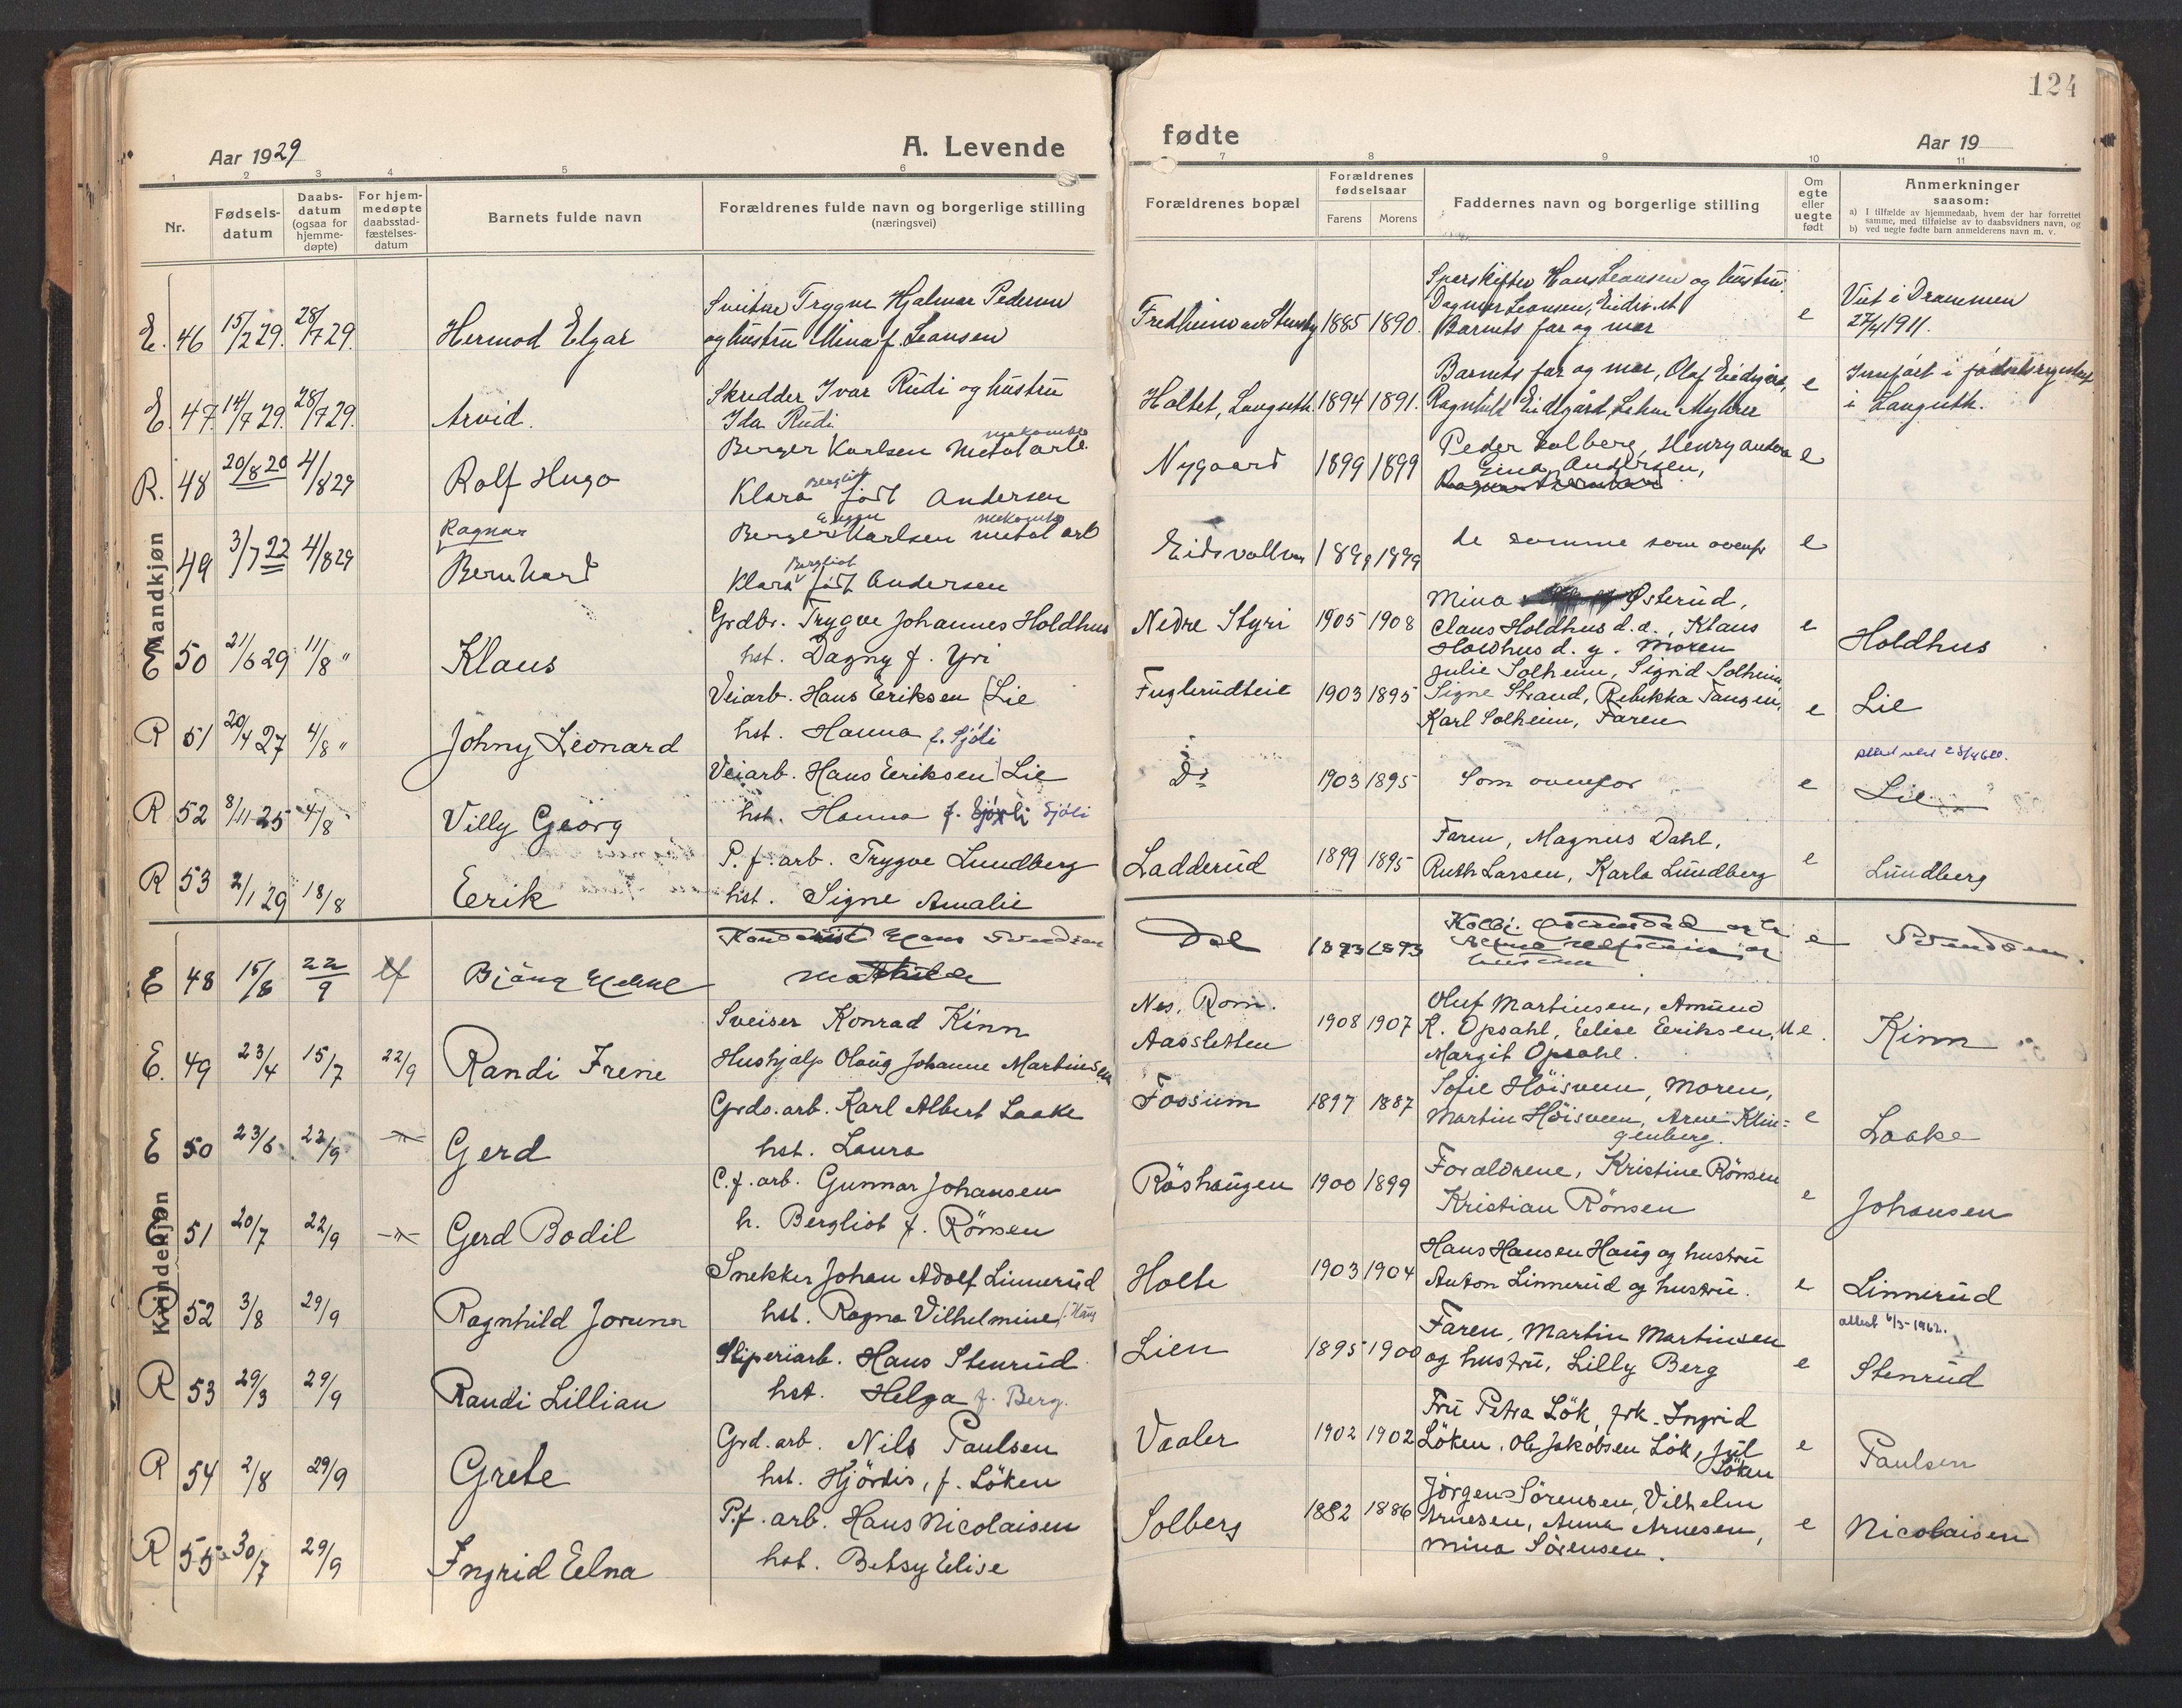 124
Aar 1929
A. Levende
fødte
Aar 19
1 2 3 4 5 6 7 8 9 10 11
Nr.
Fødsels-
datum
Daabs-
datum
(ogsaa for
hjemme-
døpte)
For hjem-
medøpte
daabsstad-
fæstelses-
datum
Barnets fulde navn
Forældrenes fulde navn og borgerlige stilling
(næringsvei)
Forældrenes bopæl
Forældrenes
fødselsaar
Farens Morens
Faddernes navn og borgerlige stilling
Om
egte
eller
uegte
født
Anmerkninger
saasom:
a) I tilfælde av hjemmedaab, hvem der har forrettet
samme, med tilføielse av to daabsvidners navn, og
b) ved uegte fødte barn anmelderens navn m. v.
Mandkjøn
E. 46 15/2 29. 28/7 29. Hermod Elgar
Trygve Hjalmar Pedersen
og hustru Mina f. Leansen
1885 1890
Hans Leansen og hustru
Dagmar Leansen,
Barnets far og mor
e
Viet i Drammen
27/4 1911.
E. 47 14/7 29. 28/7 29. Arvid.
Skredder Ivar Rudi og hustru
Ida Rudi
Holtet, Langseth. 1894 1891.
Barnets far og mor, Olaf Eidsgård,
Ragnhild Eidsgård, Myhrer
e
Innført i fødselsregisteret
i Langseth.
R. 48 20/8 20 4/8 29 Rolf Hugo
Berger Karlsen Metalarb.
Klara Bergliot født Andersen
Nygaard 1899 1899
Peder Solberg, Henry Anders
Gina Andersen,
e
49 3/7 22 4/8 29 Ragnar
Bernhard
Berger Karlsen metal arb
Klara Bergliot født Andersen
Eidsvoll 1899 1899
de samme som ovenfr
e
E 50 21/6 29 11/8 " Klaus
Grdbr. Trygve Johannes Holdhus
hst. Dagny f. Yri
Nedre Styri 1905 1908
Mina Østerud,
Claus Holdhus d. æ., Klaus
Holdhus d. y. Moren
e
Holdhus
R 51 20/4 27 4/8 " Johny Leonard
Veiarb. Hans Eriksen Lie
hst. Hanna f. Sjöli
Fuglerudteie 1903 1895
Julie Solheim, Sigrid Solheim
Signe Strand, Rebekka Tangen,
Karl Solheim, Faren
e
Lie
R 52 8/11 25 4/8 Villy Georg
Veiarb. Hans Eriksen Lie
hst. Hanna f. Sjöli
Do 1903 1895
Som ovenfor
e
Lie
R 53 2/1 29 18/8 Erik
P. f. arb. Trygve Lundberg
hst. Signe Amalie
Ladderud 1899 1895
Faren, Magnus Dahl,
Ruth Larsen, Karla Lundberg
e
Lundberg
Kvindekjøn
E 48 15/8 22/9
Hans Svendsen
Mathilde
Dal 1893 1893
e
Svendsen.
E. 49 23/4 15/7 22/9 Randi Irene
Sveiser Konrad Kinn
Hushjalp Olaug Johanne Martinsen
Nes, Rom.
Aassletten
1908 1907
Oluf Martinsen, Amund
K. Opsahl, Elise Eriksen,
Margit Opsahl.
u e.
Kinn
E 50 23/6 22/9 Gerd
Grds. arb. Karl Albert Laake
hst. Laura
Fossum 1897 1887
Sofie Höisveen, Moren,
Martin Höisveen, Arne Klin=
genberg.
e
Laake
51 20/7 22/9 Gerd Bodil
C. f. arb. Gunnar Johansen
h. Bergliot f. Rönsen
Råshaugen 1900 1899
Foraldrene, Kristine Rönsen
Kristian Rönsen
e
Johansen
R 52 3/8 29/9 Ragnhild Jorunn
Snekker Johan Adolf Linnerud
hst. Ragna Vilhelmine f. Haug
Holte 1903 1904
Hans Hansen Haug og hustru
Anton Linnerud og hustru.
e
Linnerud
attest 6/3-1962.
R 53 29/3 29/9 Randi Lillian
Sliperiarb. Hans Stenrud
hst. Helga f. Berg.
Lien 1895 1900
Faren, Martin Martinsen
og hustru, Lilly Berg
e
Stenrud
R 54 2/8 29/9 Grete
Grd. arb. Nils Paulsen
hst. Hjördis, f. Löken
Vaaler 1902 1902
Fru Petra Lök, frk. Ingrid
Löken, Ole Jakobsen Lök, Jul
Löken
e
Paulsen
R 55 30/7 29/9 Ingrid Elna
P.f. arb. Hans Nicolaisen
hst. Betsy Elise
Solberg 1882 1886
Jörgen Sörensen, Vilhelm
Arnesen, Anna Arnesen,
Mina Sörensen.
e
Nicolaisen